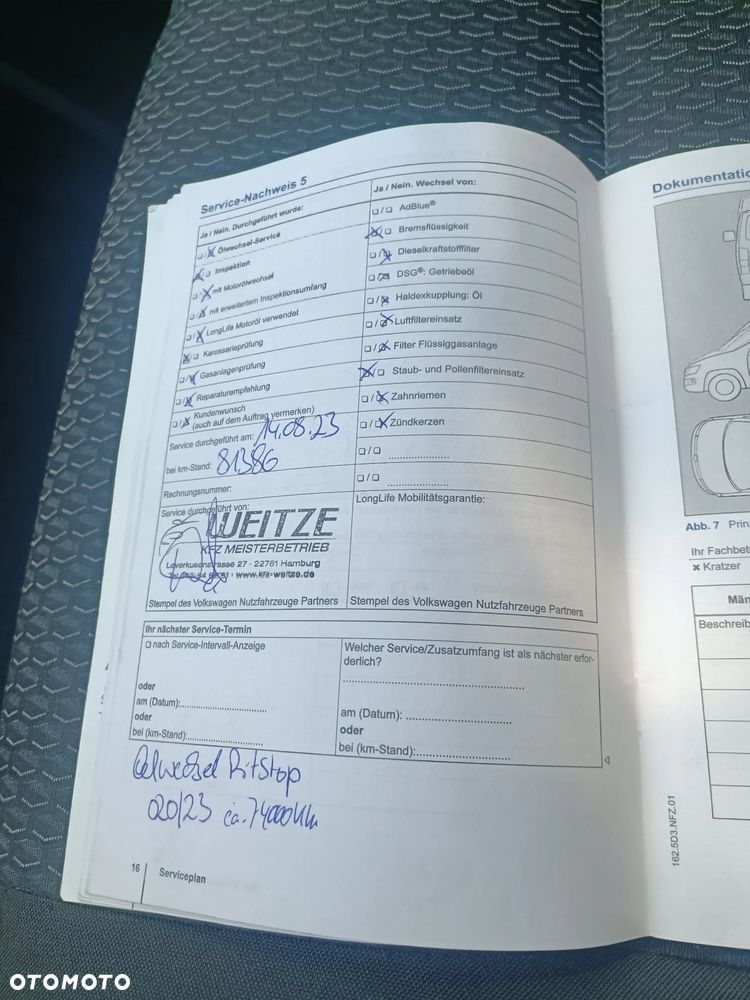 Service-Nachweis 5
Ja / Nein. Durchgeführt wurde:
Ölwechsel-Service
Inspektion
mit Motorölwechsel
mit erweitertem Inspektionsumfang
LongLife Motoröl verwendet
Karosserieprüfung
Gasanlagenprüfung
Reparaturempfehlung
Kundenwunsch
(auch auf dem Auftrag vermerken)
Service durchgeführt am: 14.08.23
bei km-Stand: 81386
Rechnungsnummer:
Service durchgeführt von:
WEITZE
KFZ MEISTERBETRIEB
Leverkusenstrasse 27 · 22761 Hamburg
www.kfz-weitze.de
Stempel des Volkswagen Nutzfahrzeuge Partners
Ja / Nein. Wechsel von:
AdBlue®
Bremsflüssigkeit
Dieselkraftstofffilter
DSG®: Getriebeöl
Haldexkupplung: Öl
Luftfiltereinsatz
Filter Flüssiggasanlage
Staub- und Pollenfiltereinsatz
Zahnriemen
Zündkerzen
LongLife Mobilitätsgarantie:
Stempel des Volkswagen Nutzfahrzeuge Partners
Ihr nächster Service-Termin
nach Service-Intervall-Anzeige
oder
am (Datum):
oder
bei (km-Stand):
Welcher Service/Zusatzumfang ist als nächster erfor-
derlich?
am (Datum):
oder
bei (km-Stand):
020/23 ca. 74000 Km
16 Serviceplan
Dokumentatio
Abb. 7 Prin
Ihr Fachbet
× Kratzer
Män
Beschreib
162.5D3.NFZ.01
OTOMOTO